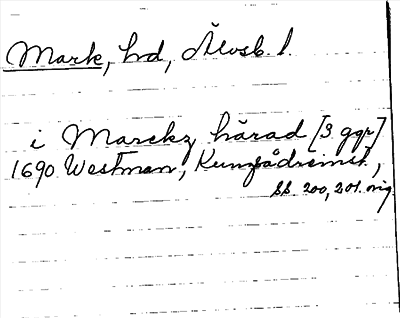 Mark, hd, Älvsb. l.
i Marckz härad [3 ggr]
1690 Westman,
ss. 200, 201. orig